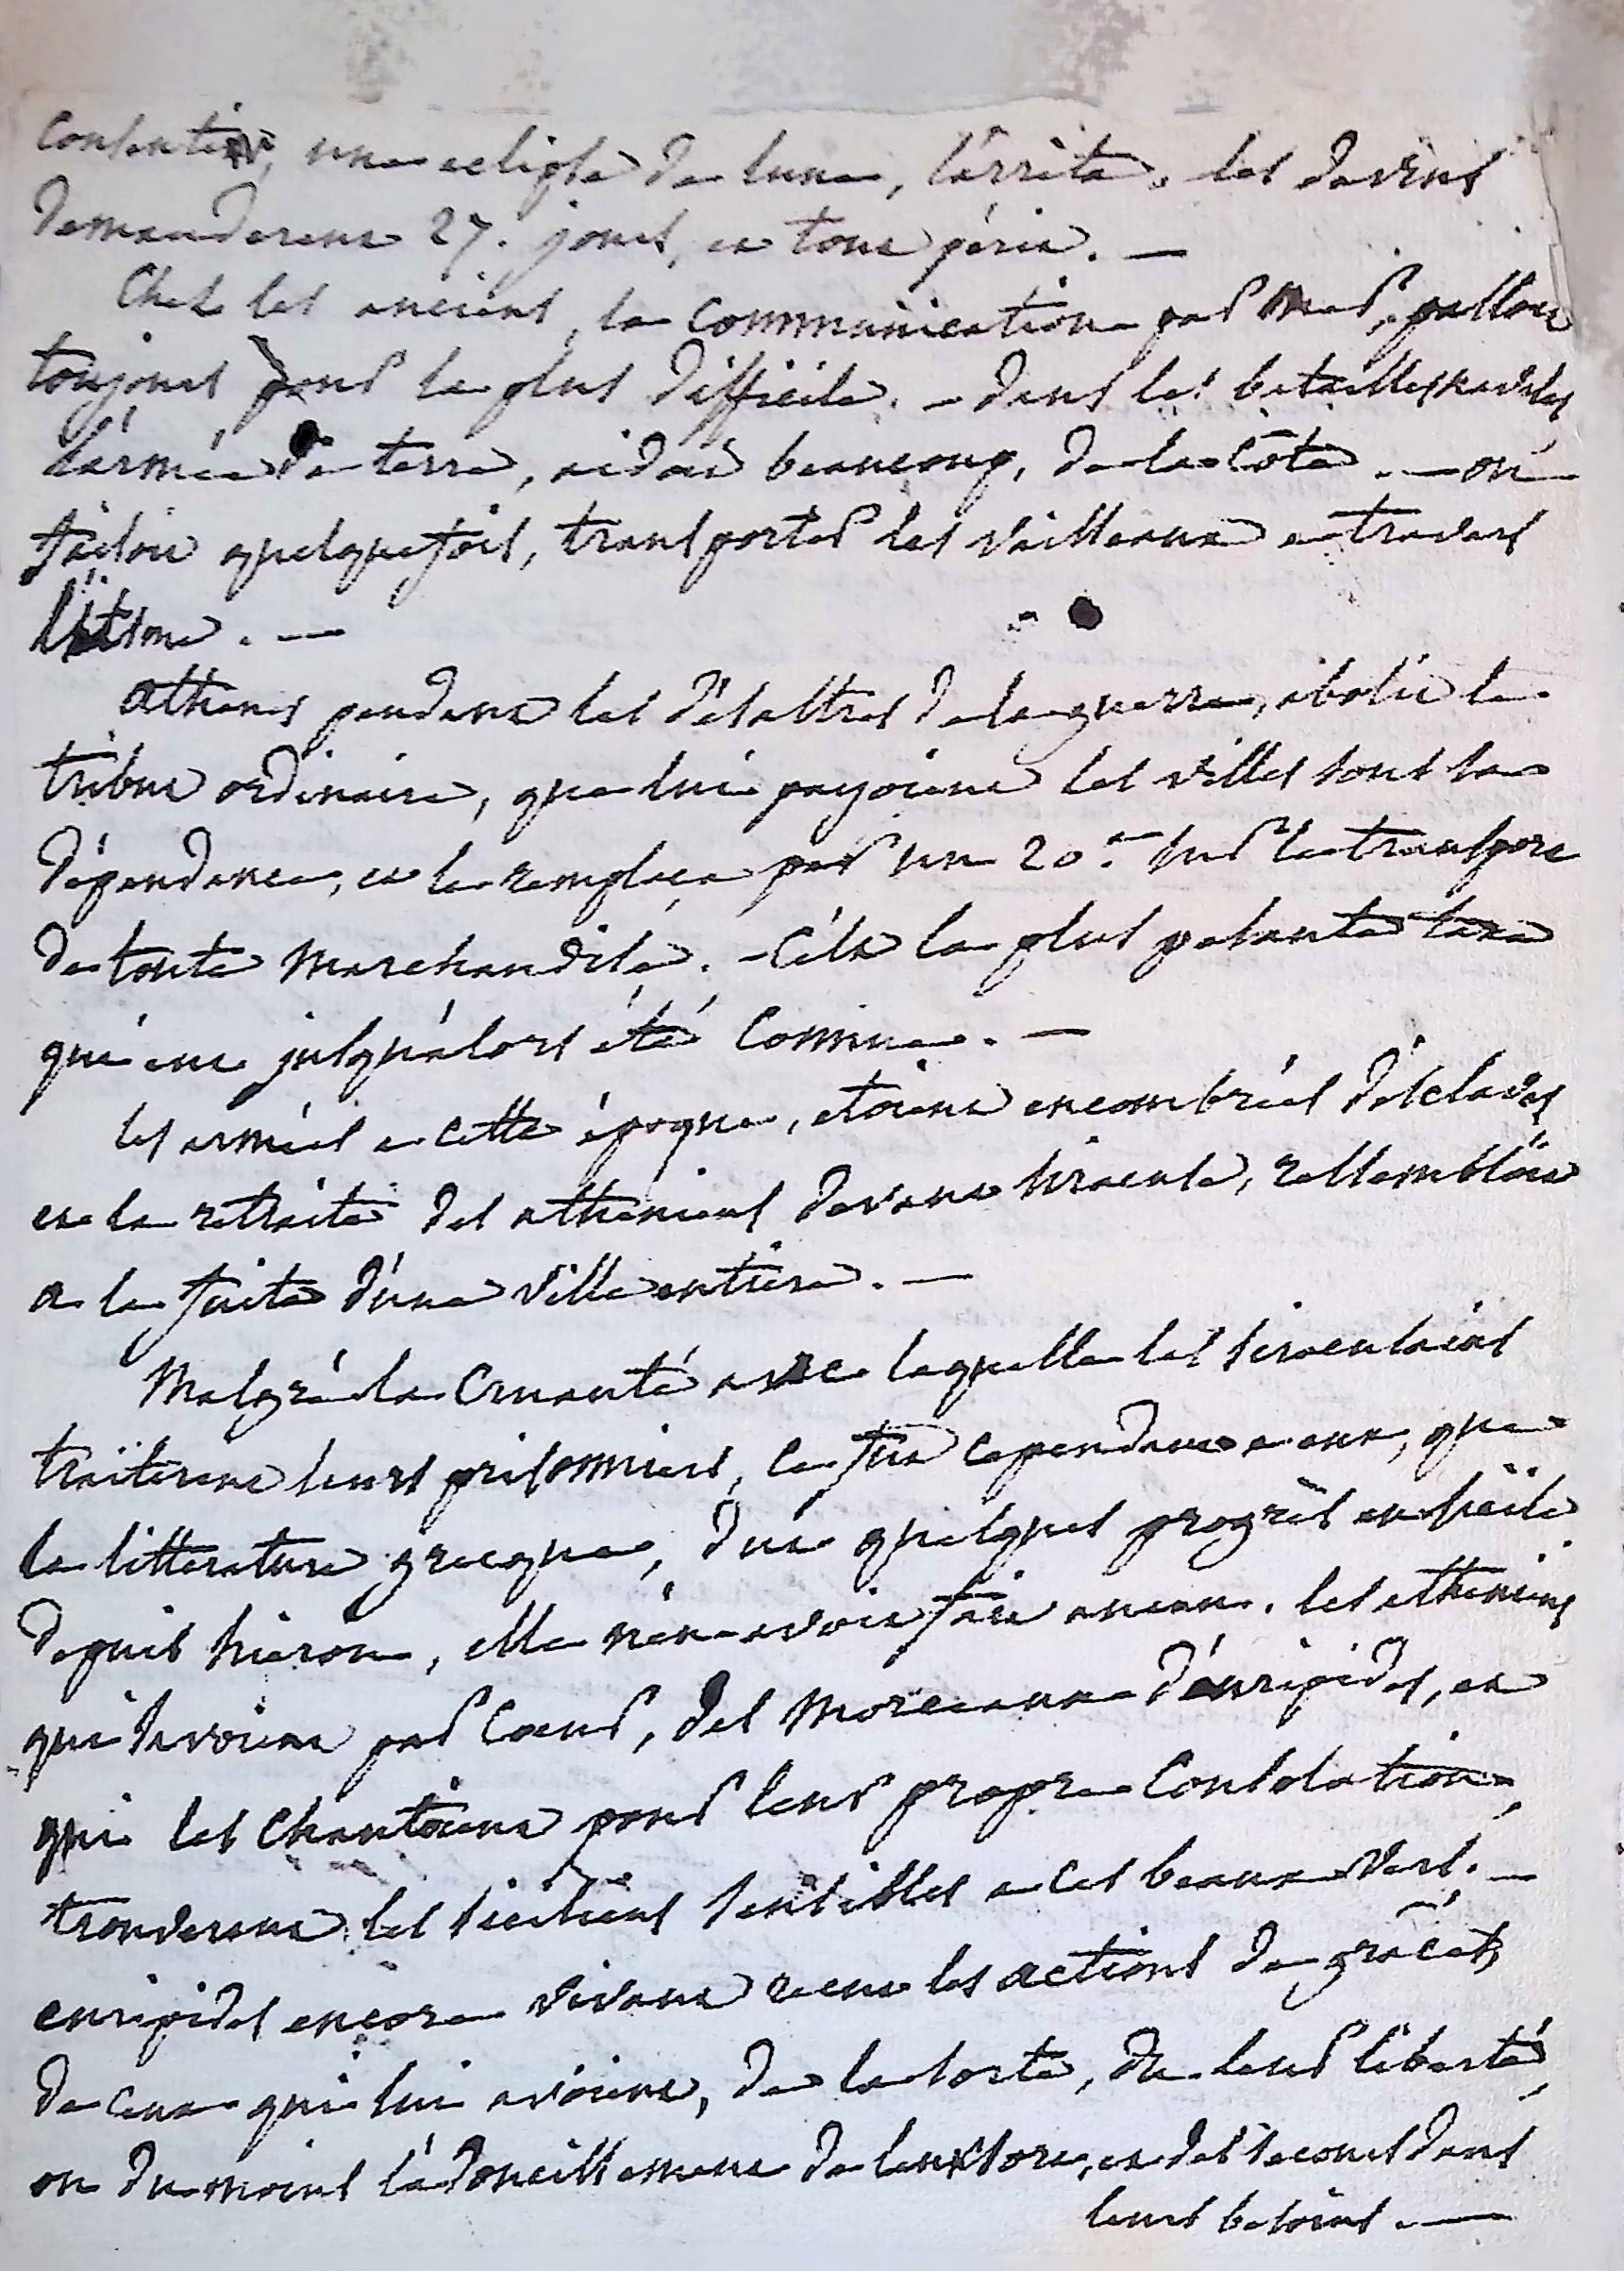 consentir, une eclipse de lune, l'arrêta. les devins
demanderent 27. jours, et tout périt. —
Chez les anciens, la communication par mer, passoit
toujours pour la plus difficile. — dans les batailles navales
l'armée de terre, aidoit beaucoup, de la côte. — on
faisoit quelquefois, transporter les vaisseaux a travers
l'istme. —
athenes pendant les désastres de la guerre, abolit le
tribut ordinaire, que lui payoient les villes sous sa
dépendance, et le remplaça par un 20.e sur le transport
de toute marchandise. — C'est la plus pesante taxe
qui eut jusqu'alors été connue. —
les armées a cette époque, etoient encombrées d'esclaves
et la retraite des atheniens devant siracuse, ressembloit
a la fuite d'une ville entiere. —
Malgré la cruauté avec laquelle les siracusains
traiterent leurs prisonniers, ce fut cependant a eux, que
la litterature grecque, dut quelques progrès en sicile
depuis hieron, elle n'en avoit fait aucun. les atheniens
qui savoient par coeur, des morceaux d'euripides, et
qui les chantoient pour leur propre consolation,
trouverent les siciliens sensibles a ces beaux vers. —
euripides encore vivant recut les actions de grâces,
de ceux qui lui avoient, de la sorte, du leur liberté,
ou du moins l'adoucissement de leur sort, et des secours dans
leurs besoins. —